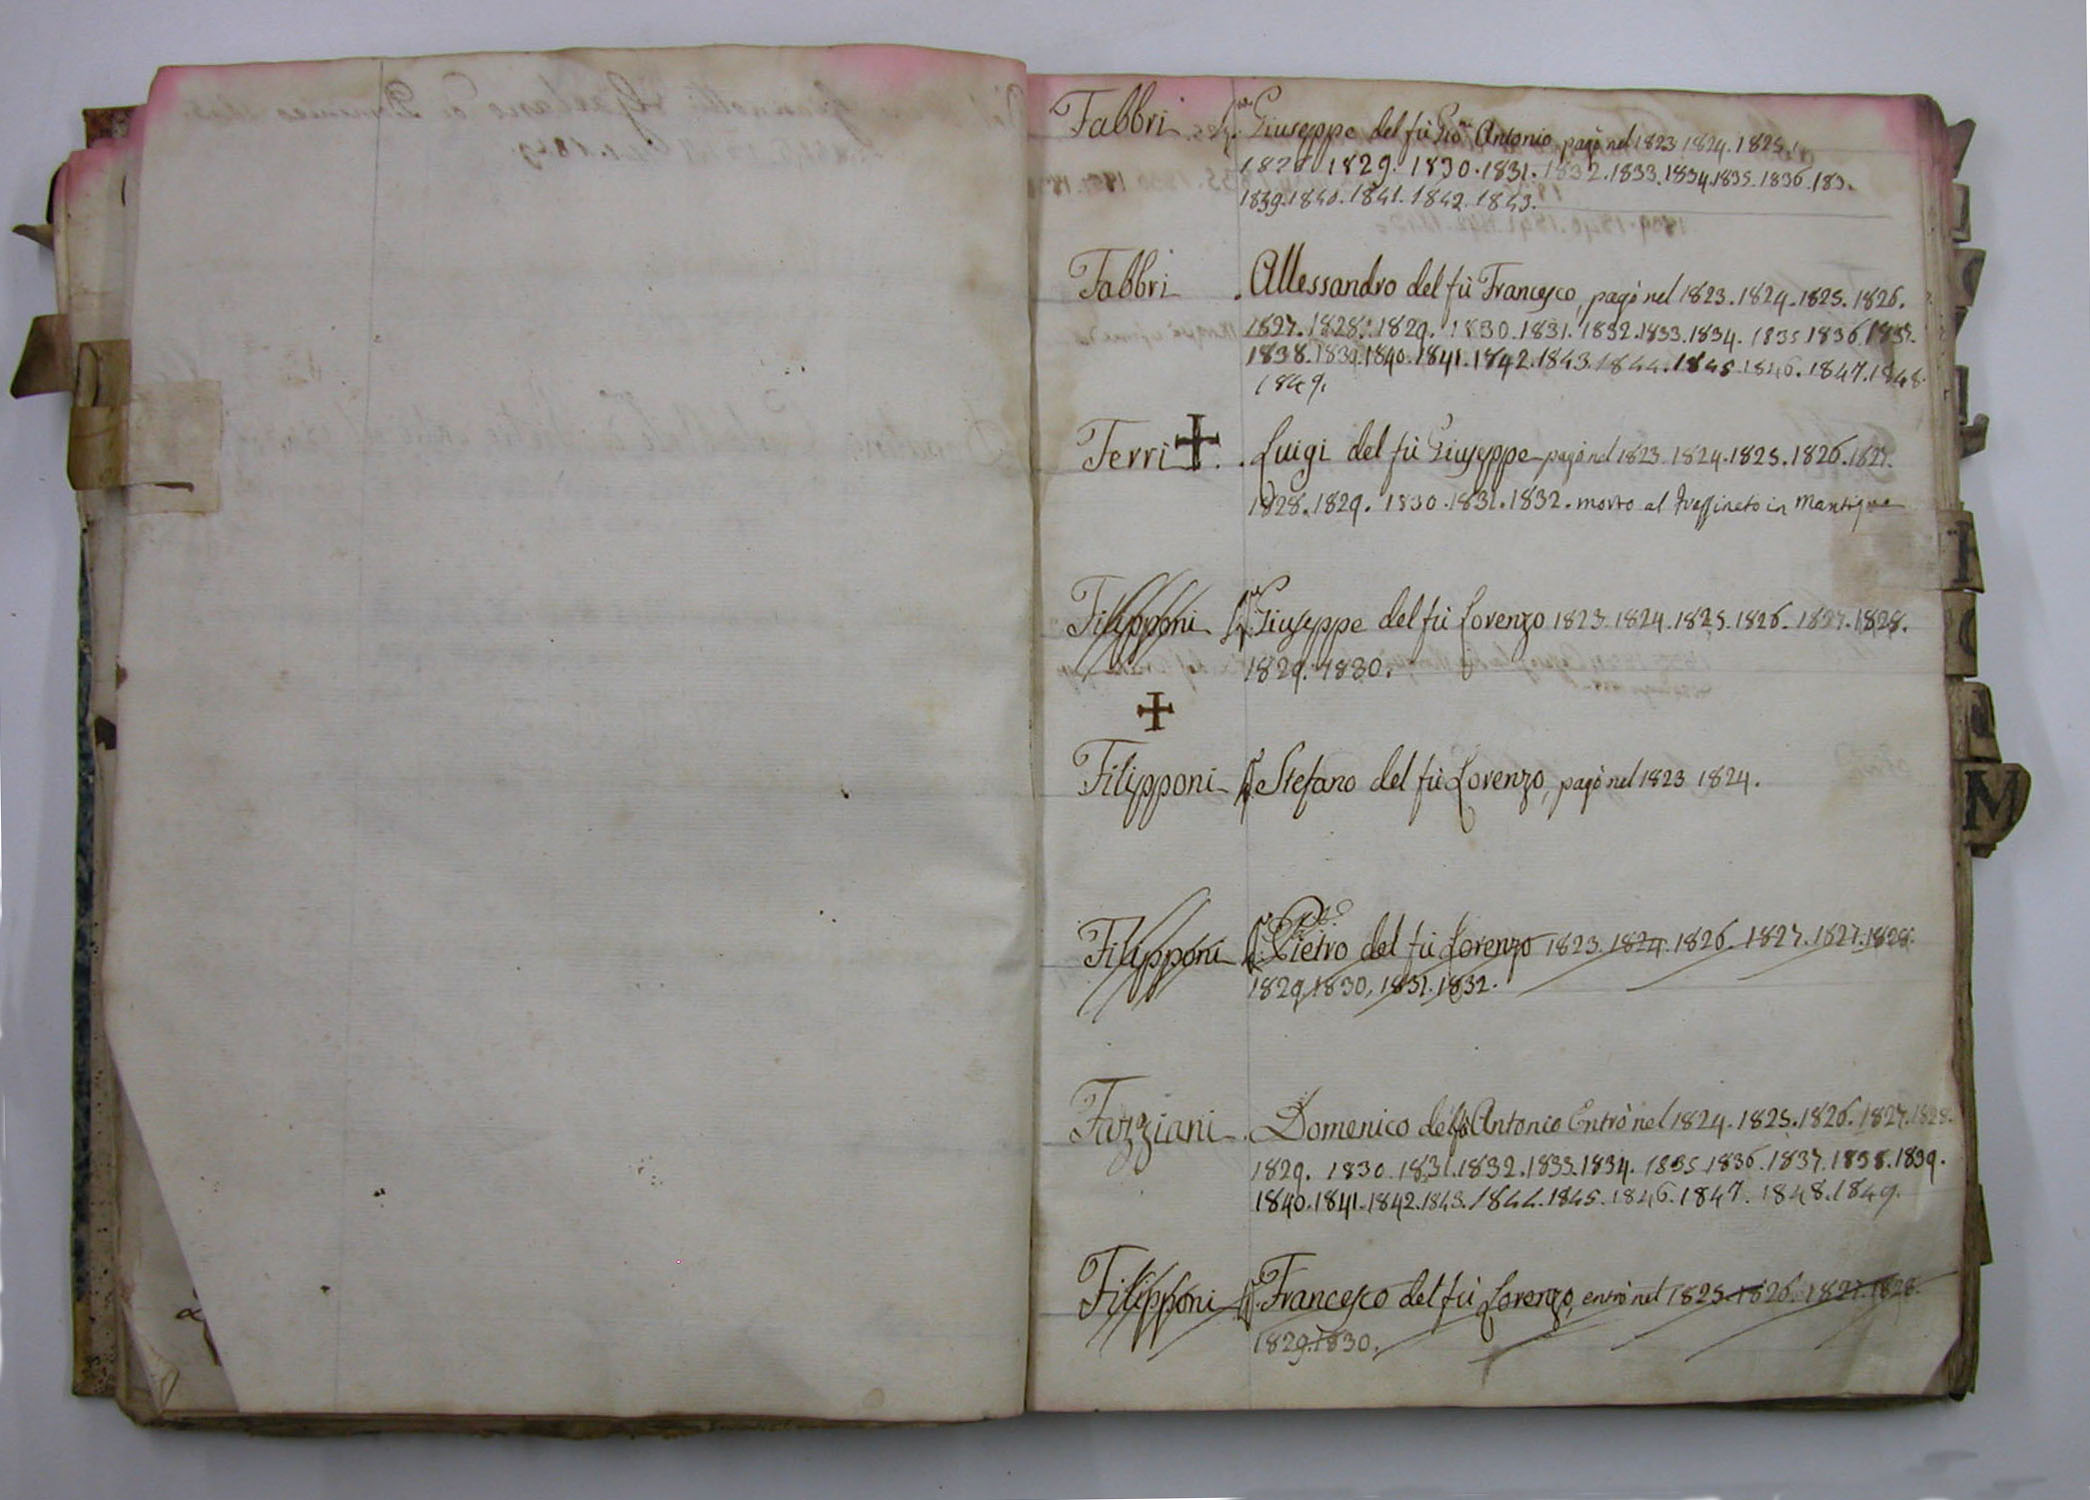 Fabbri Giuseppe del fù Gio. Antonio pagò nel 1823 1824. 1825.
1829. 1830. 1831. 1832. 1833. 1834. 1835. 1836. 183.
1839. 1840. 1841. 1842. 1843.
Fabbri . Allessandro del fù Francesco, pagò nel 1823. 1824. 1825. 1826.
1827. 1828. 1829. 1830. 1831. 1832. 1833. 1834. 1835 1836. 1837.
1838. 1839. 1840. 1841. 1842. 1843. 1844. 1845. 1846. 1847. 1848.
1849.
Ferri . . Luigi del fù Giuseppe pagò nel 1823. 1824. 1825. 1826. 1827.
1828. 1829. 1830. 1831. 1832. morto al in
Filipponi Giuseppe del fù Lorenzo 1823. 1824. 1825. 1826. 1827. 1828.
1829. 1830.
Filipponi Stefano del fù Lorenzo, pagò nel 1823 1824.
Filipponi Pietro del fù Lorenzo 1823. 1824. 1826. 1827. 1827. 1828.
1829. 1830. 1831. 1832.
Fazziani . Domenico del fù Antonio Entrò nel 1824. 1825. 1826. 1827. 1828.
1829. 1830. 1831. 1832. 1833. 1834. 1835. 1836. 1837. 1838. 1839.
1840. 1841. 1842. 1843. 1844. 1845. 1846. 1847. 1848. 1849.
Filipponi Francesco del fù Lorenzo, entrò nel 1825. 1826. 1827. 1828.
1829. 1830.
F
M